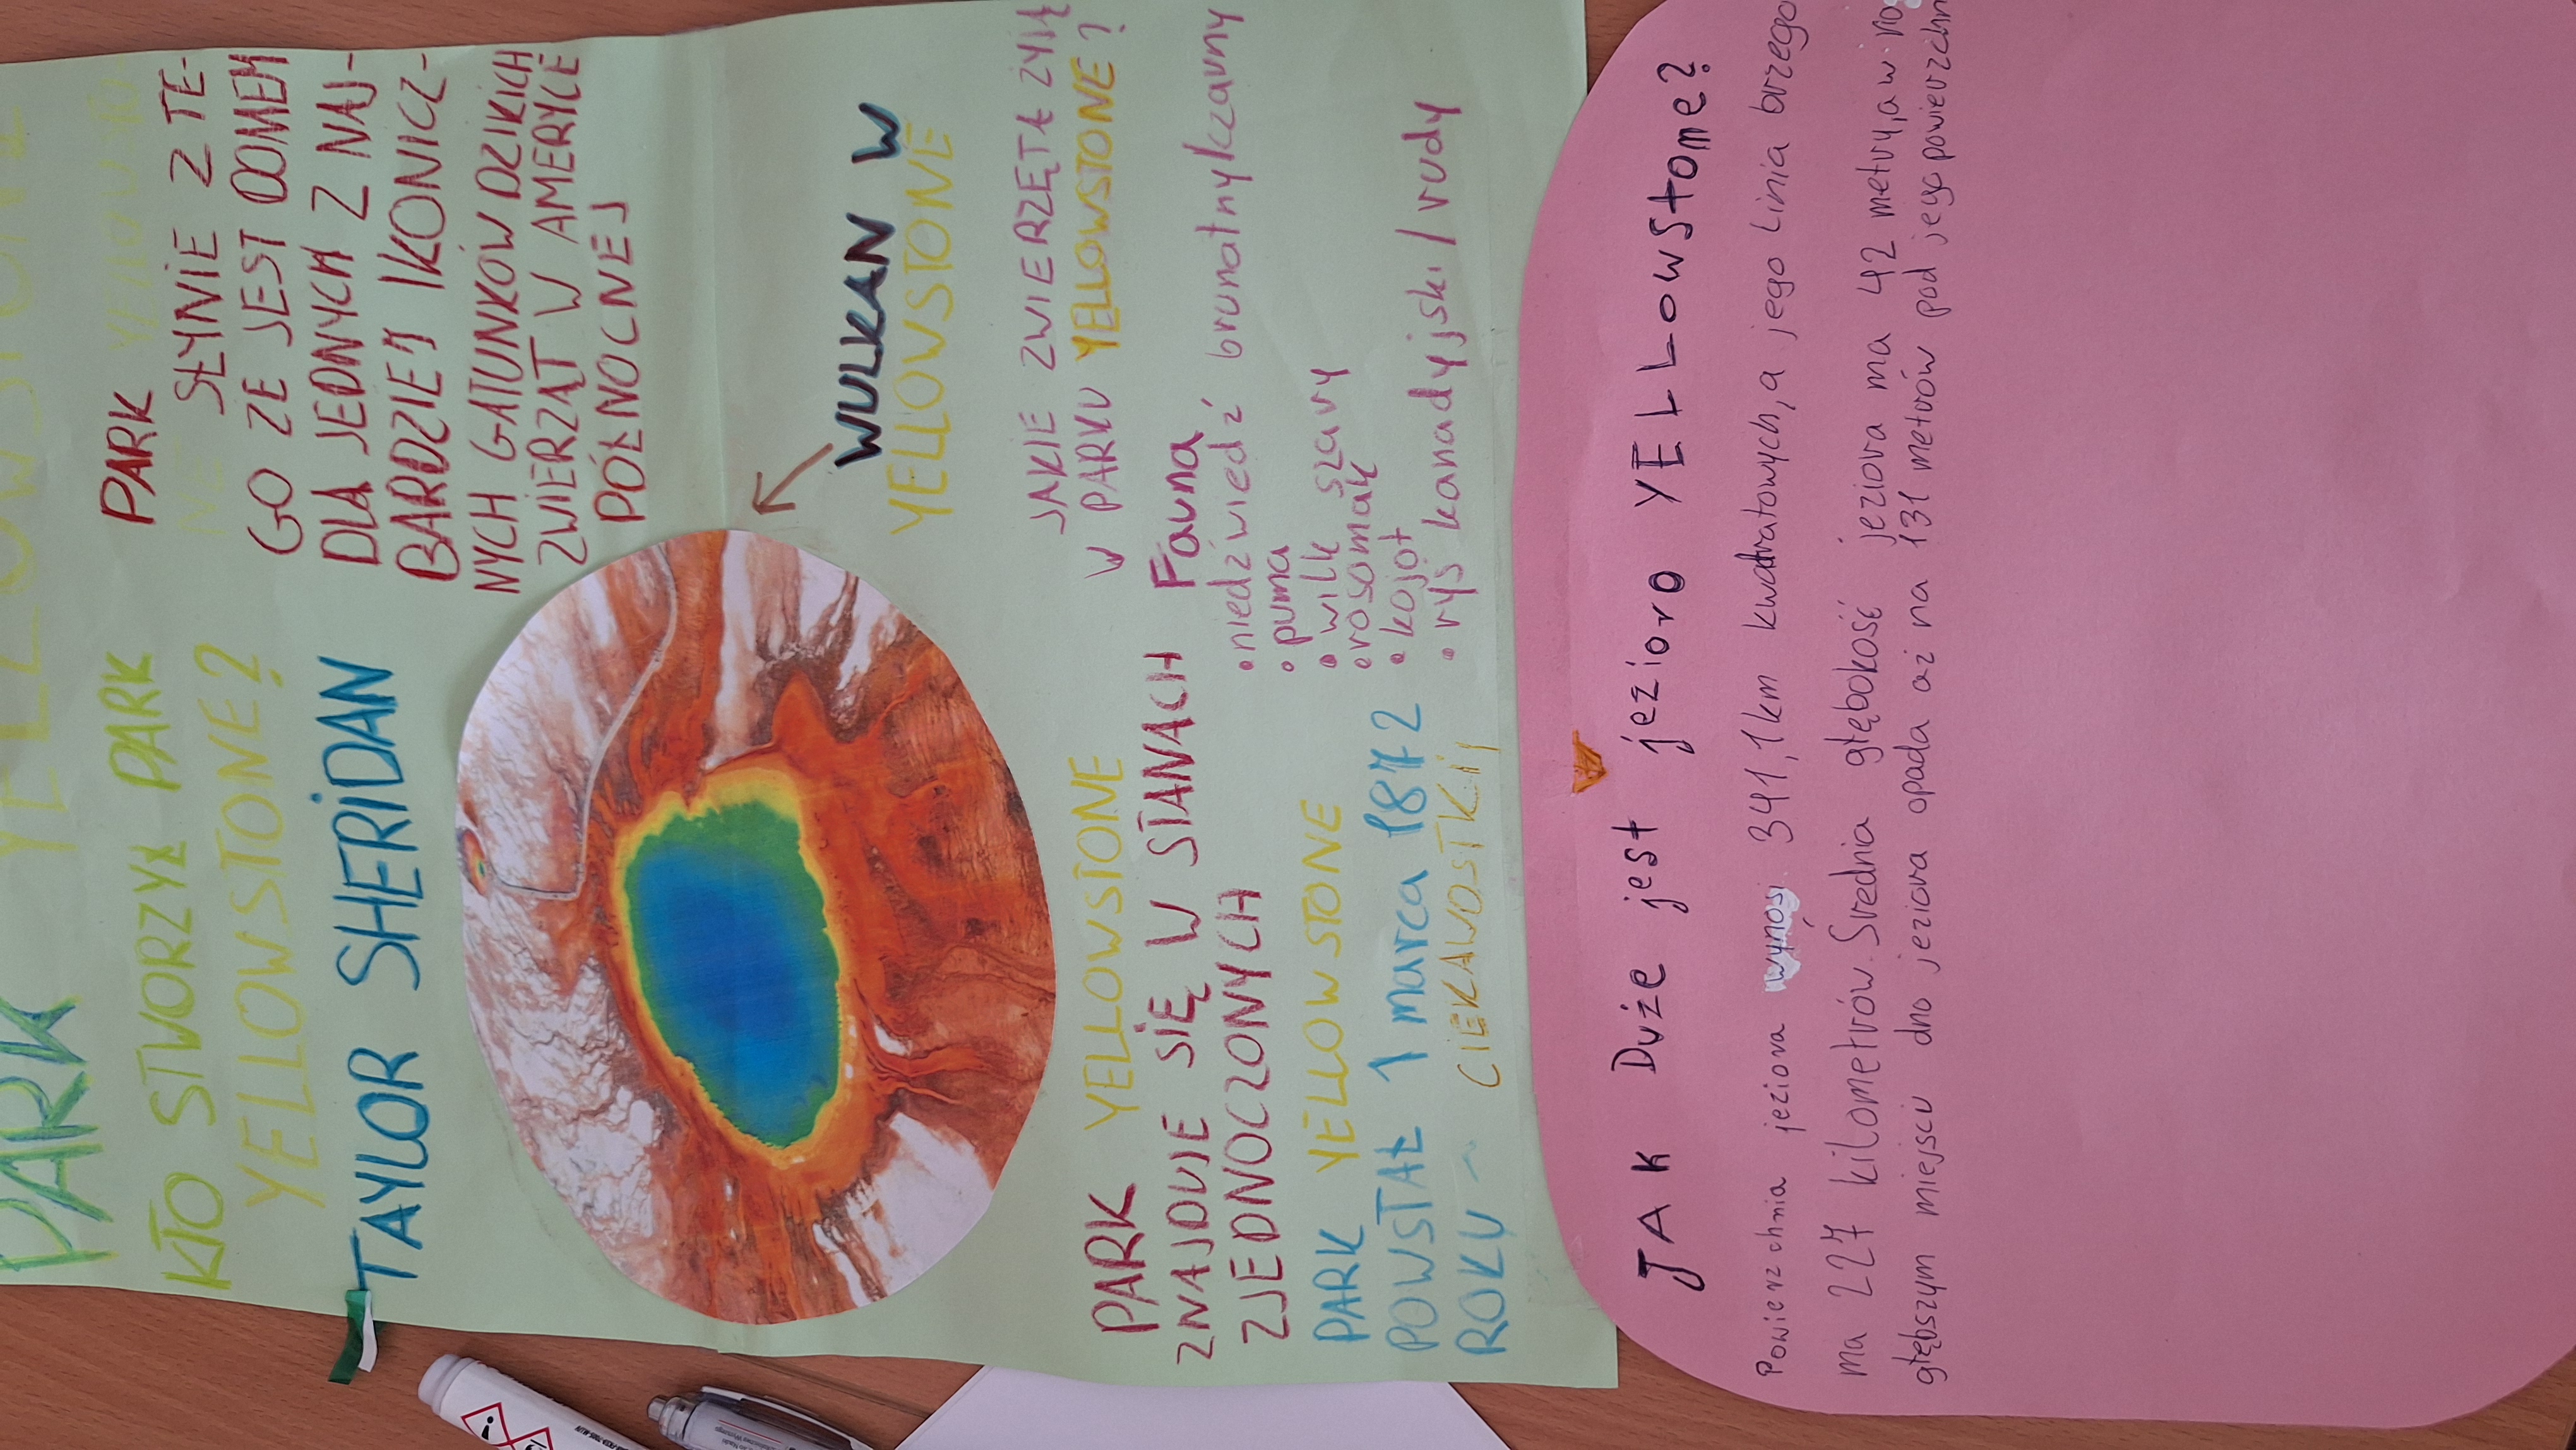 PARK YELLOWSTONE
KTO STWORZYŁ PARK
YELLOWSTONE?
TAYLOR SHERIDAN
PARK
SŁYNIE Z TE-
GO ŻE JEST DOMEM
DLA JEDNYCH Z NAJ-
BARDZIEJ IKONICZ-
NYCH GATUNKÓW DZIKICH
ZWIERZĄT W AMERYCE
PÓŁNOCNEJ
WULKAN W
YELLOWSTONE
PARK YELLOWSTONE
ZNAJDUJE SIĘ W STANACH
ZJEDNOCZONYCH
PARK YELLOWSTONE
POWSTAŁ 1 marca 1872
ROKU
CIEKAWOSTKI
JAKIE ZWIERZĘTA ŻYJĄ
W PARKU YELLOWSTONE?
Fauna
• niedźwiedź brunatny/czarny
• puma
• wilk szary
• rosomak
• kojot
• ryś kanadyjski/rudy
JAK Duże jest jezioro YELLOWStone?
Powierzchnia jeziora wynosi 341,1km kwadratowych, a jego linia brzego
ma 227 kilometrów. Średnia głębokość jeziora ma 42 metry, a w
głębszym miejscu dno jeziora opada aż na 131 metrów pod jego powierzchn